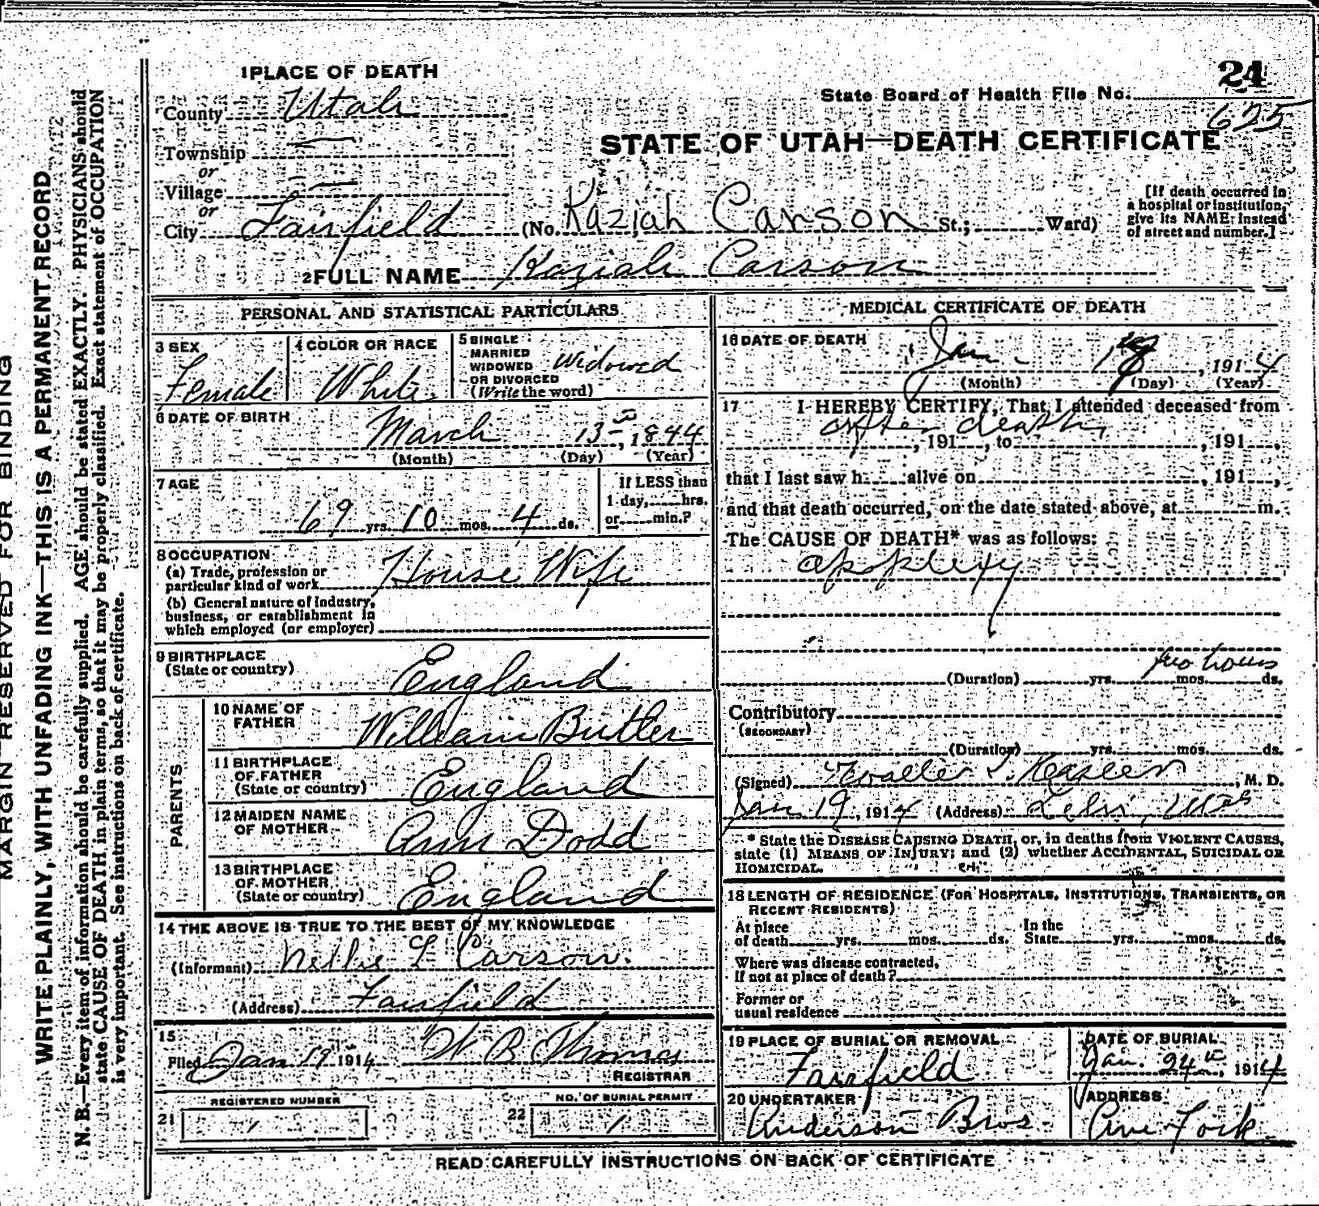 MARGIN RESERVED FOR BINDING
WRITE PLAINLY, WITH UNFADING INK—THIS IS A PERMANENT RECORD
N. B.—Every item of information should be carefully supplied. AGE should be stated EXACTLY. PHYSICIANS should
state CAUSE OF DEATH in plain terms, so that it may be properly classified. Exact statement of OCCUPATION
is very important. See instructions on back of certificate.
1 PLACE OF DEATH
County Utah
Township —
or
Village —
or
City Fairfield
24
State Board of Health File No.
625
STATE OF UTAH—DEATH CERTIFICATE
(No. Kaziah Carson St.; Ward)
[If death occurred in
a hospital or institution,
give its NAME instead
of street and number.]
2 FULL NAME Kaziah Carson
PERSONAL AND STATISTICAL PARTICULARS
3 SEX
Female
4 COLOR OR RACE
White
5 SINGLE
MARRIED
WIDOWED
OR DIVORCED
(Write the word)
Widowed
6 DATE OF BIRTH
March 13, 1844
(Month) (Day) (Year)
7 AGE
69 yrs. 10 mos. 4 ds.
If LESS than
1 day, hrs.
or min.?
8 OCCUPATION
(a) Trade, profession or
particular kind of work House Wife
(b) General nature of industry,
business, or establishment in
which employed (or employer)
9 BIRTHPLACE
(State or country)
England
PARENTS
10 NAME OF
FATHER
William Butler
11 BIRTHPLACE
OF FATHER
(State or country)
England
12 MAIDEN NAME
OF MOTHER
Ann Dodd
13 BIRTHPLACE
OF MOTHER
(State or country)
England
14 THE ABOVE IS TRUE TO THE BEST OF MY KNOWLEDGE
(Informant) Nellie L Carson.
(Address) Fairfield
15
Filed Jan 19 1914 W B Thomas
REGISTRAR
REGISTERED NUMBER
21 1
NO. OF BURIAL PERMIT
22 1
MEDICAL CERTIFICATE OF DEATH
16 DATE OF DEATH
Jan , 1914
(Month) (Day) (Year)
17 I HEREBY CERTIFY, That I attended deceased from
after death , 191 , to , 191 ,
that I last saw h alive on , 191 ,
and that death occurred, on the date stated above, at m.
The CAUSE OF DEATH* was as follows:
apoplexy
two hours
(Duration) yrs. mos. ds.
Contributory
(SECONDARY)
(Duration) yrs. mos. ds.
(Signed) , M. D.
Jan 19, 1914 (Address) Lehi, Utah
* State the DISEASE CAUSING DEATH, or, in deaths from VIOLENT CAUSES,
state (1) MEANS OF INJURY; and (2) whether ACCIDENTAL, SUICIDAL OR
HOMICIDAL.
18 LENGTH OF RESIDENCE (FOR HOSPITALS, INSTITUTIONS, TRANSIENTS, OR
RECENT RESIDENTS)
At place
of death yrs. mos. ds.
In the
State yrs. mos. ds.
Where was disease contracted,
If not at place of death?
Former or
usual residence
19 PLACE OF BURIAL OR REMOVAL
Fairfield
DATE OF BURIAL
Jan. 24th, 1914
20 UNDERTAKER
Anderson Bros.
ADDRESS
Am Fork
READ CAREFULLY INSTRUCTIONS ON BACK OF CERTIFICATE